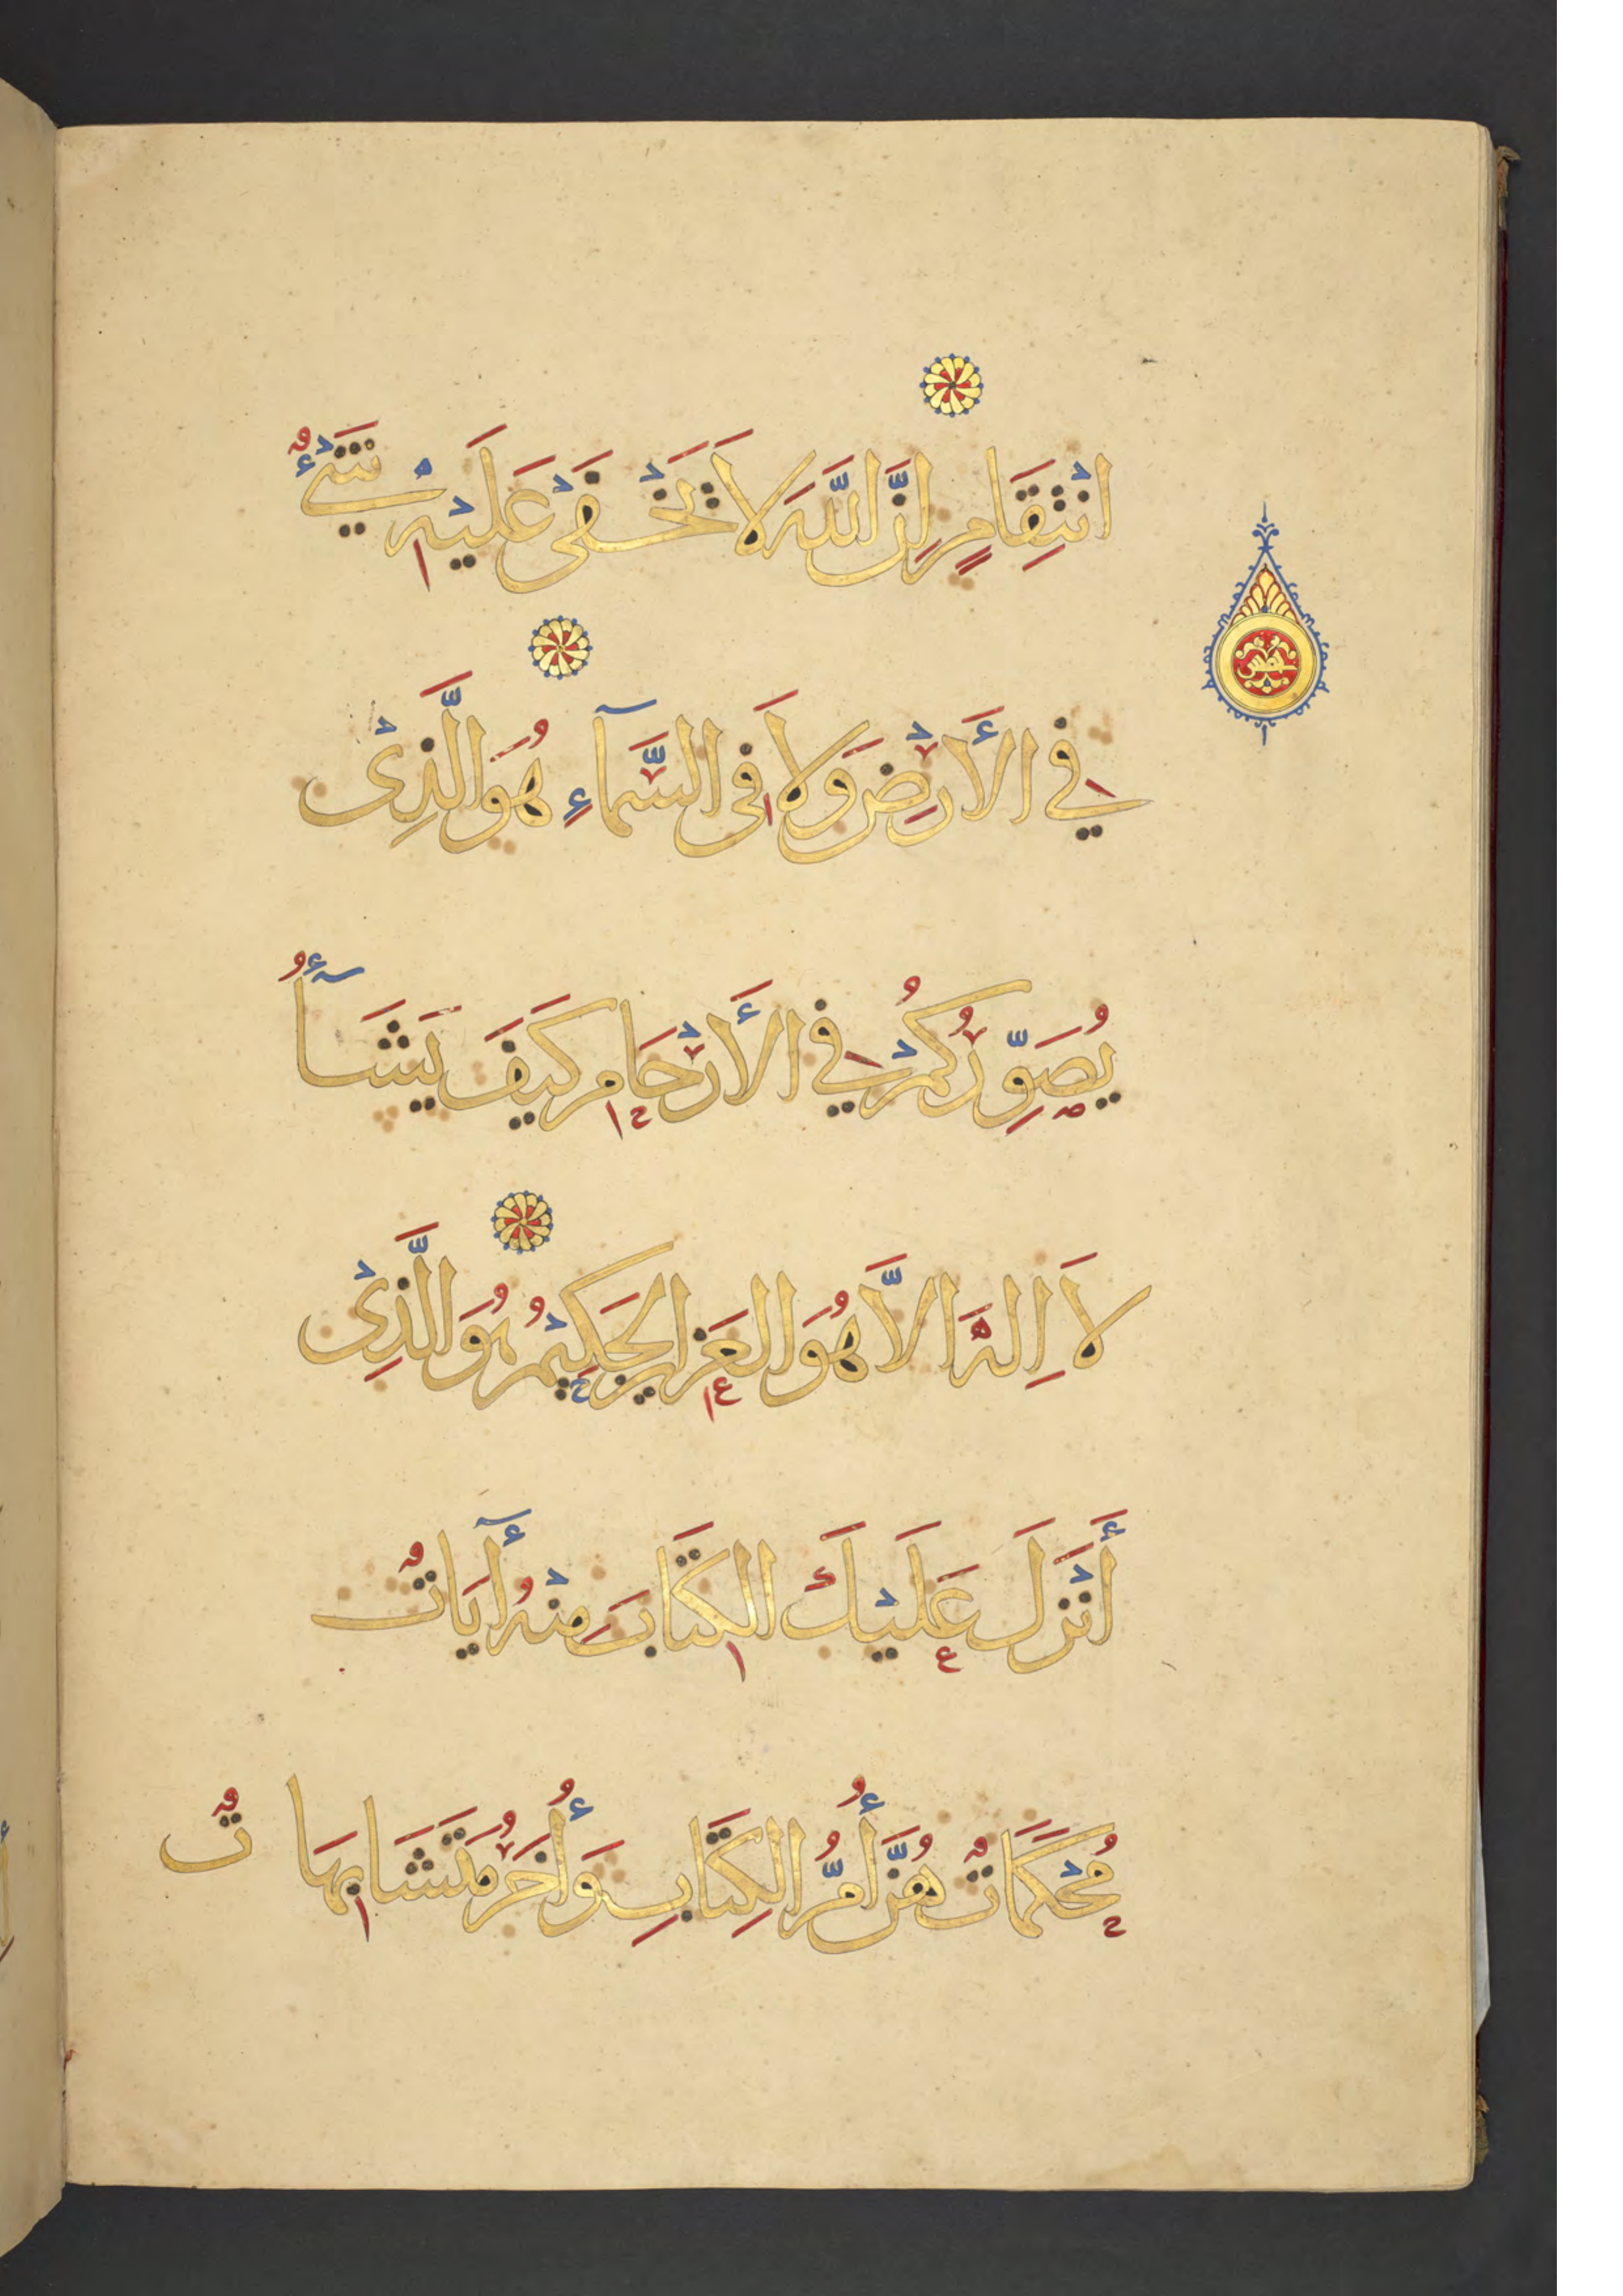 انْتِقَامٍ اِنَّ اللَّهَ لَا يَخْفَىٰ عَلَيْهِ شَيْءٌ
فِي الأَرْضِ وَلَا فِى السَّمَآءِ هُوَ الَّذِى
يُصَوِّرُكُمْ فِي الأَرْحَامِ كَيْفَ يَشَآءُ
لَا اِلٰهَ اِلَّا هُوَ الْعَزِيزُ الْحَكِيْمُ هُوَ الَّذِى
أَنْزَلَ عَلَيْكَ الكِتَابَ مِنْهُ أٓيَاتٌ
مُحْكَمَاتٌ هُنَّ أُمُّ الكِتَابِ وَأُخَرُ مُتَشَابِهَاتٌ
خمس